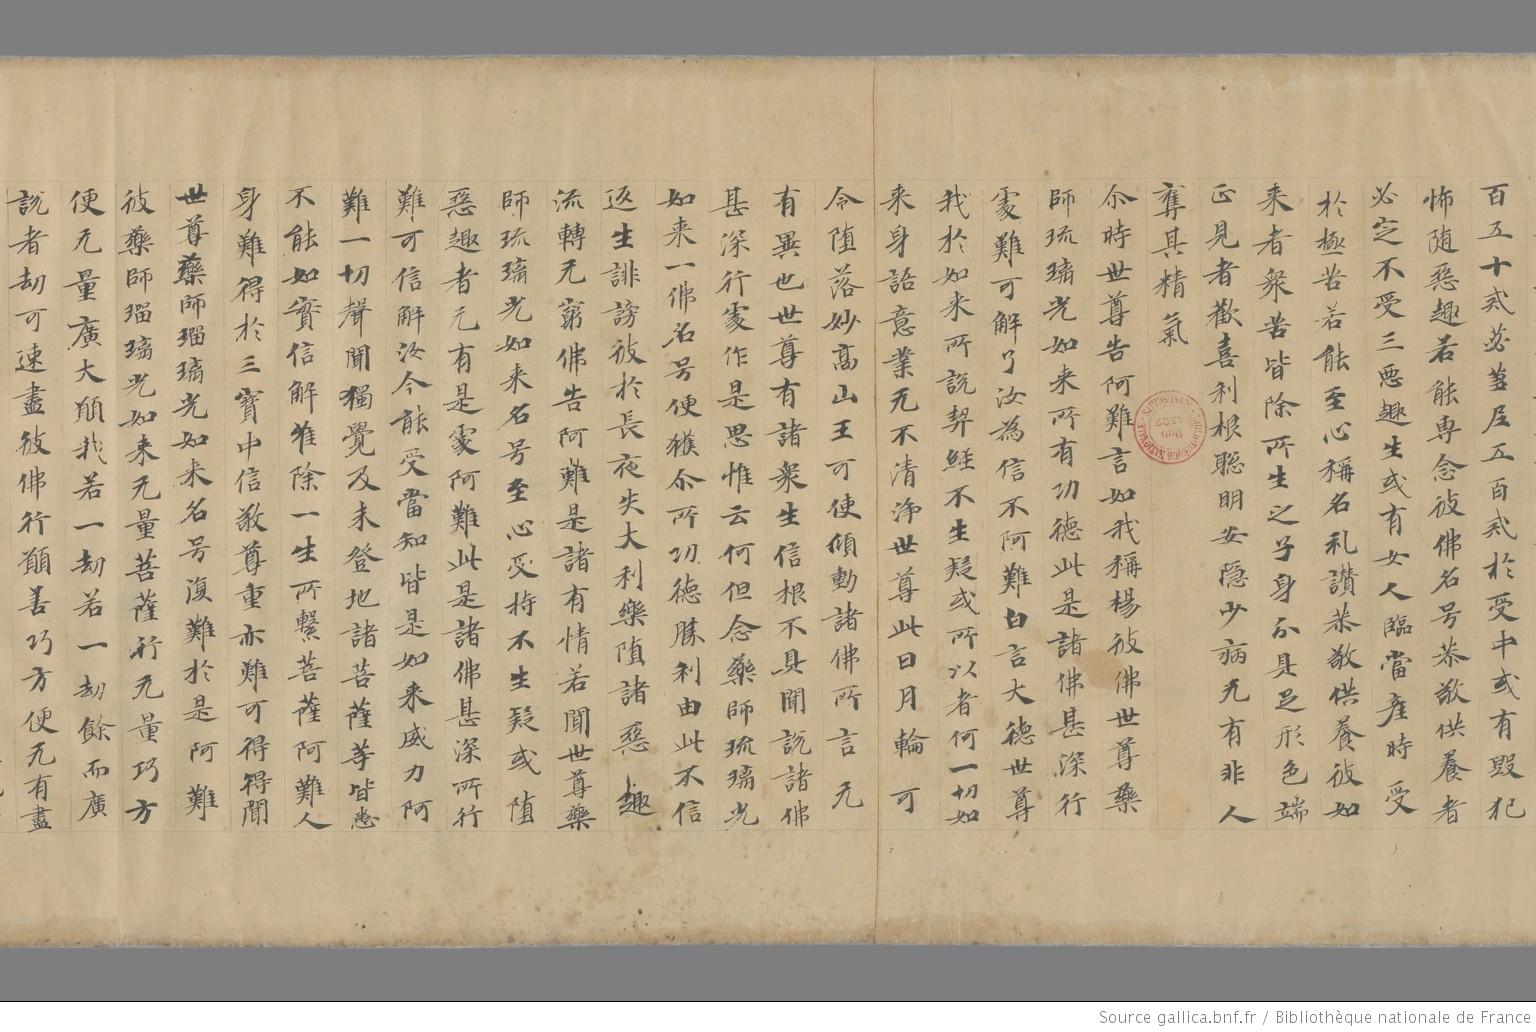 百五十貳苾蒭尼五百貳於受中或有毀犯
怖随惡趣若能専念彼佛名号恭敬供養者
必定不受三悪趣生或有女人臨當產時受
於極苦若能至心稱名礼讚恭敬供養彼如
来者衆苦皆除所生之子身分具足形色端
正見者歡喜利根聡明安隠少病无有非人
奪其精氣
尒時世尊告阿難言如我稱楊彼佛世尊藥
師琉璃光如来所有功德此是諸佛甚深行
處難可解了汝為信不阿難白言大德世尊
我於如来所説契經不生疑或所以者何一切如
来身語意業无不清浄世尊此日月輪可
令堕落妙高山王可使傾動諸佛所言无
有異也世尊有諸衆生信根不具聞說諸佛
甚深行處作是思惟云何但念藥師琉璃光
如来一佛名号便獲尒所功德勝利由此不信
返生誹謗彼於長夜失大利樂堕諸惡趣
流轉无窮佛告阿難是諸有情若聞世尊藥
師琉璃光如来名号至心受持不生疑或堕
惡趣者无有是處阿難此是諸佛甚深所行
難可信解汝今能受當知皆是如来威力阿
難一切聲聞獨覺及未登地諸菩薩等皆悉
不能如實信解惟除一生所繫菩薩阿難人
身難得於三寶中信敬尊重亦難可得得聞
世尊藥師瑠璃光如来名号復難於是阿難
彼藥師瑠璃光如来无量菩薩行无量巧方
便无量廣大願我若一劫若一劫餘而廣
説者劫可速盡彼佛行願善巧方便无有盡
Source gallica.bnf.fr / Bibliothèque nationale de France